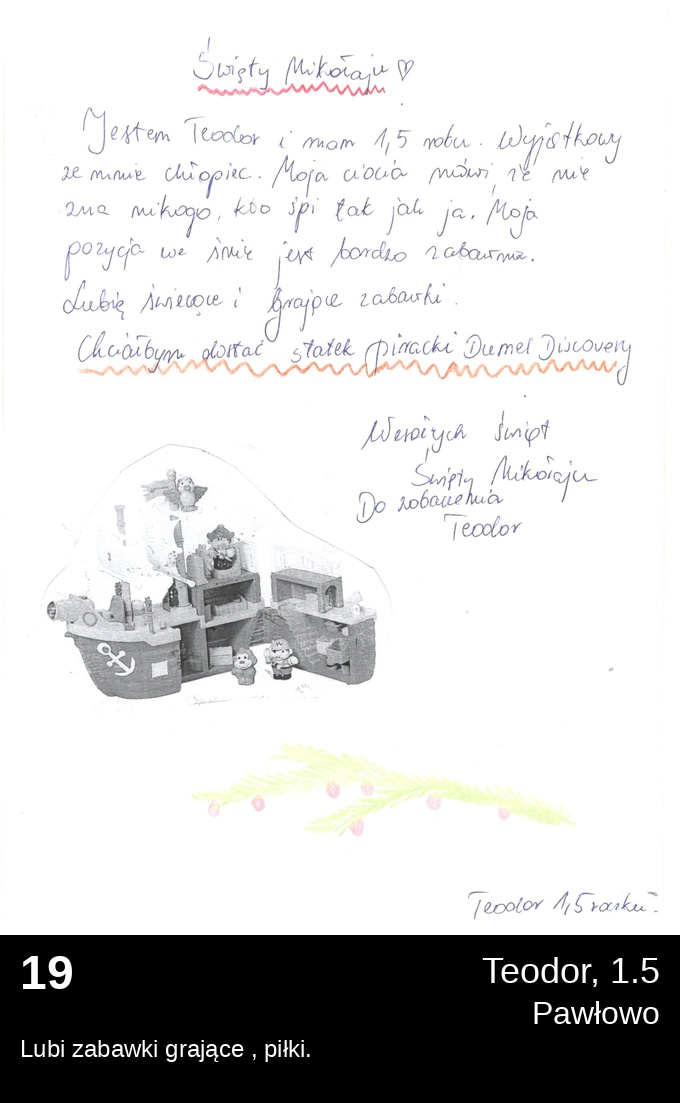 Święty Mikołaju ♡
Jestem Teodor i mam 1,5 roku. Wyjątkowy
ze mnie chłopiec. Moja ciocia mówi, że nie
zna nikogo, kto śpi tak jak ja. Moja
pozycja we śnie jest bardzo zabawna.
Lubię świecące i grające zabawki.
Chciałbym dostać statek piracki Dumel Discovery
Wesołych Świąt
Święty Mikołaju
Do zobaczenia
Teodor
Teodor 1,5 roczku.
19
Teodor, 1.5
Pawłowo
Lubi zabawki grające , piłki.